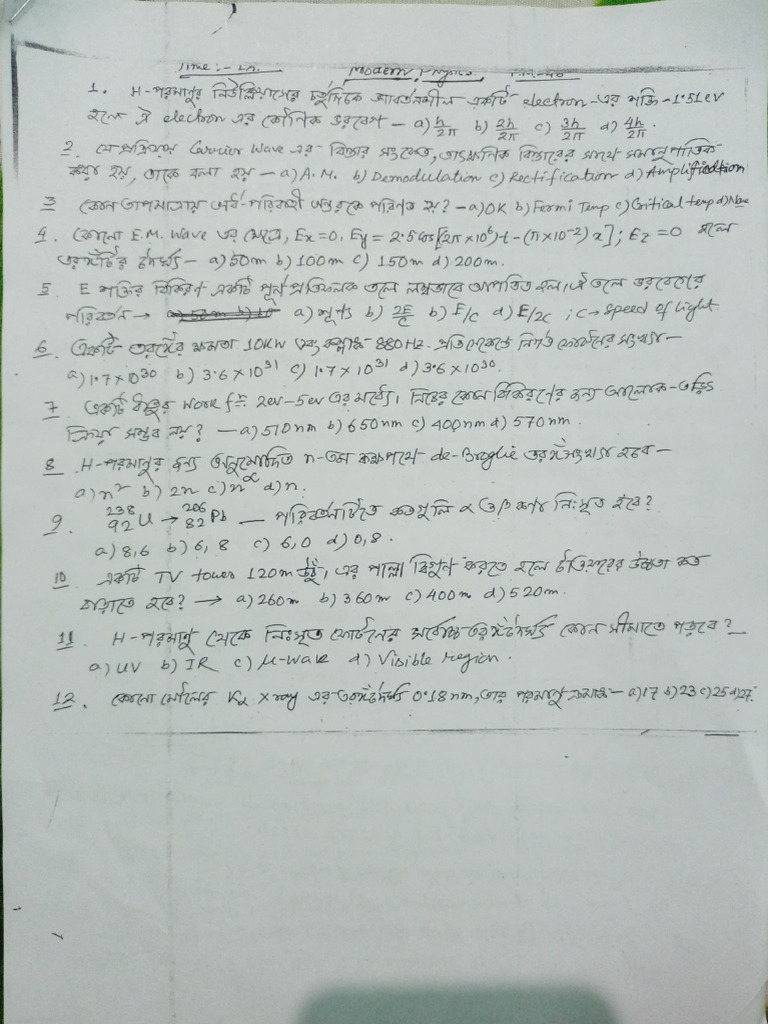 Time:- 1h. Modern Physics. F.M-40
1. H-পরমাণুর নিউক্লিয়াসের চতুর্দিকে আবর্তনশীল একটি electron-এর শক্তি -1.51ev
হলে ঐ electron এর কৌণিক ভরবেগ - a) h/2π b) 2h/2π c) 3h/2π d) 4h/2π.
2. যে প্রক্রিয়ায় Carrier Wave এর বিস্তার সংকেত, তাৎক্ষণিক বিস্তারের সাথে সমানুপাতিক
করা হয়, তাকে বলা হয় - a) A.M. b) Demodulation c) Rectification d) Amplification
3 কোন তাপমাত্রায় অর্ধ-পরিবাহী অন্তরকে পরিণত হয়? - a) 0K b) Fermi Temp c) Critical temp d) None
4. কোনো E.M. Wave এর ক্ষেত্রে, Ex=0, Ey = 2.5 cos[2π×10⁶)t - (π×10⁻²) x]; Ez=0 হলে
তরঙ্গটির দৈর্ঘ্য - a) 50m b) 100m c) 150m d) 200m.
5. E শক্তির বিকিরণ একটি পূর্ণ প্রতিফলক তলে লম্বভাবে আপতিত হল, ঐ তলে ভরবেগের
পরিবর্তন → a) শূণ্য b) 2E/c b) E/c d) E/2c ; c → speed of light.
6. একটি তরঙ্গের ক্ষমতা 10KW এবং কম্পাঙ্ক 880HZ. প্রতি সেকেন্ডে নির্গত ফোটনের সংখ্যা-
a) 1.7×10³⁰ b) 3.6×10³¹ c) 1.7×10³¹ d) 3.6×10³⁰.
7. একটি ধাতুর work fn 2ev-5ev এর মধ্যে। নিচের কোন বিকিরণের জন্য আলোক-তড়িৎ
ক্রিয়া সম্ভব নয়? - a) 510nm b) 650nm c) 400nm d) 570nm.
8. H-পরমাণুর জন্য অনুমোদিত n-তম কক্ষপথে de-Broglie তরঙ্গসংখ্যা হবে-
a) n² b) 2n d) n.
9. ²³⁸₉₂U → ²⁰⁶₈₂Pb — পরিবর্তনটিতে কতগুলি α ও β কণা নিঃসৃত হবে?
a) 8,6 b) 6,8 c) 6,0 d) 0,8.
10 একটি TV tower 120m উঁচু, এর পাল্লা দ্বিগুন করতে হলে টাওয়ারের উচ্চতা কত
বাড়াতে হবে? → a) 260m b) 360m c) 400m d) 520m.
11. H-পরমাণু থেকে নিঃসৃত ফোটনের সর্বোচ্চ তরঙ্গদৈর্ঘ্য কোন সীমাতে পড়বে?
a) UV b) IR c) μ-wave d) Visible region.
12. কোনো মৌলের Kα x ray এর তরঙ্গদৈর্ঘ্য 0.18nm, তার পরমাণু ক্রমাঙ্ক - a) 17 b) 23 c) 25 d) 27.